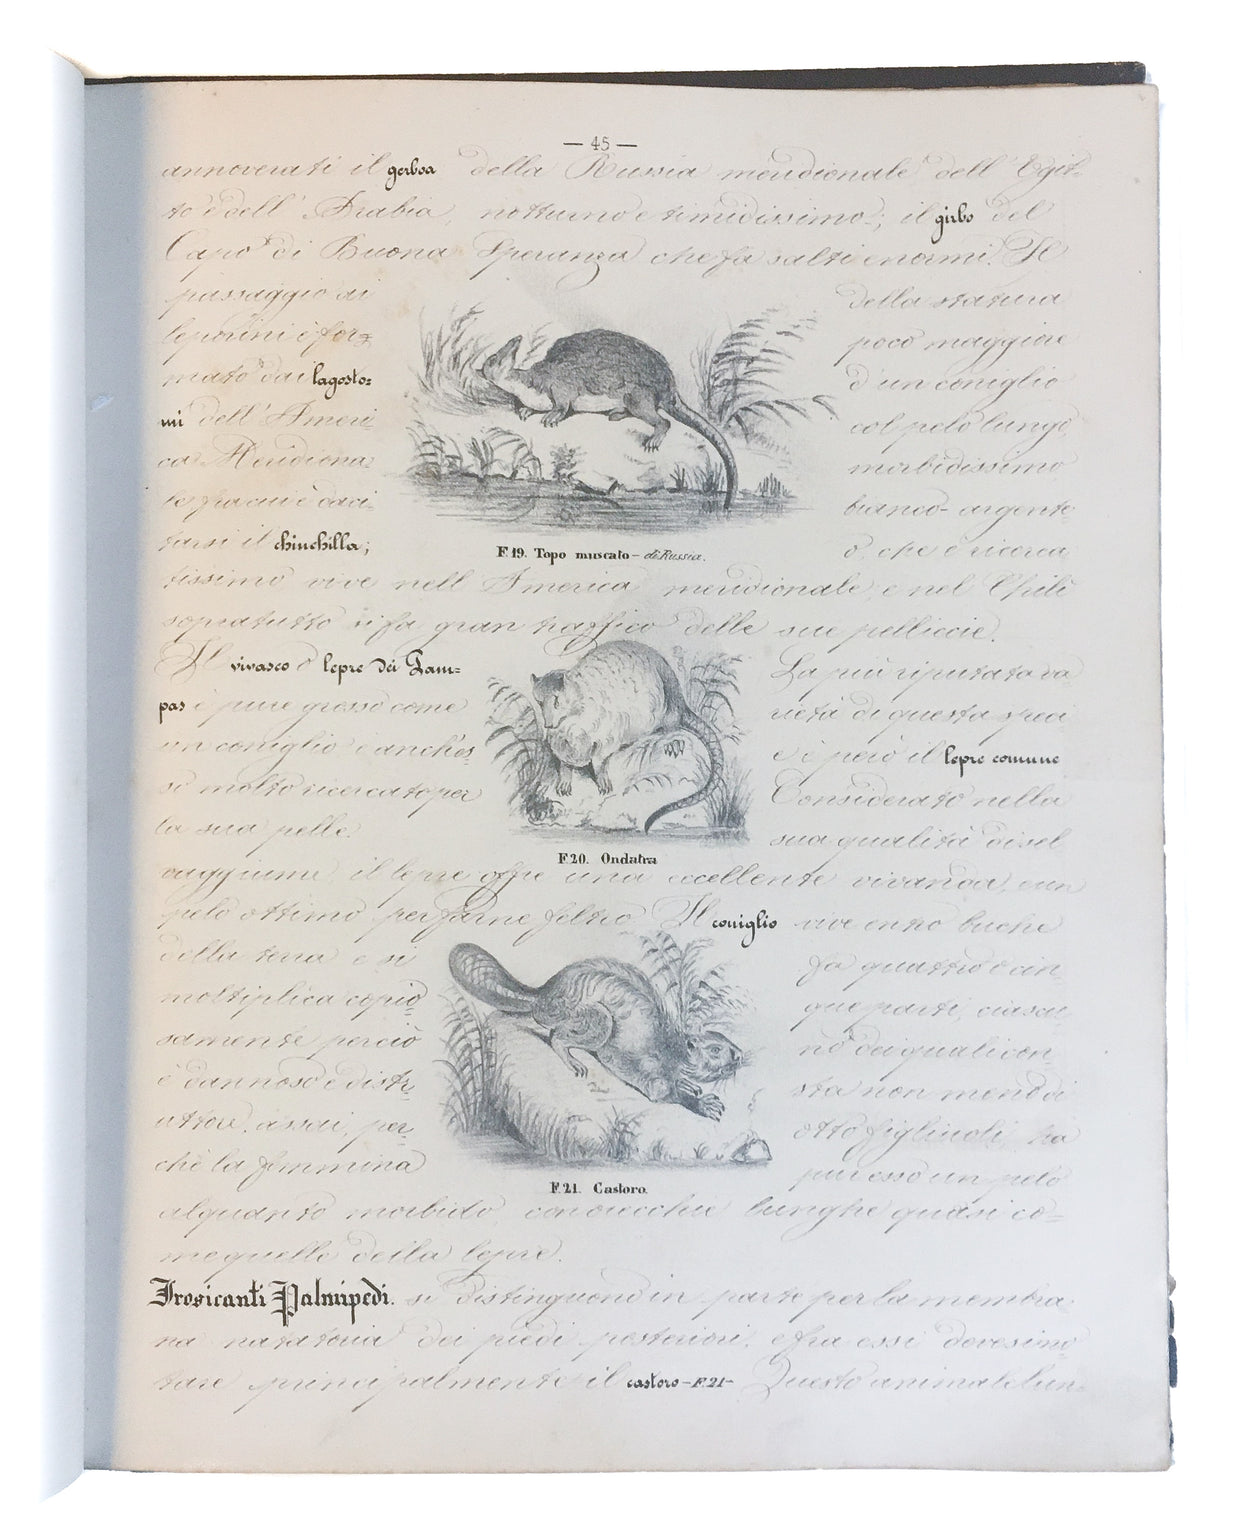 — 45 —
annoverati il gerboa della Russia meridionale dell' Egit-
to e dell' Arabia, notturno e timidissimo; il girbo del
Capo di Buona Speranza che fa salti enormi. Il
passaggio ai
leporini è for=
mato dai lagosto=
mi dell' Ameri=
ca Meridiona=
le fra cui è daci=
tarsi il chinchilla;
della statura
poco maggiore
d'un coniglio
col pelo lungo
morbidissimo
bianco-argente
o, che è ricerca
F. 19. Topo muscato - di Russia.
tissimo vive nell America meridionale, e nel Chilì
sopratutto si fa gran traffico delle sue pelliccie.
Il vivasco o lepre dei Pam=
pas è pure grosso come
un coniglio è anch'es=
so molto ricercato per
la sua pelle.
La più riputata va
rietà di questa speci
e è però il lepre comune
Considerato nella
sua qualità di sel
F. 20. Ondatra
vaggiume, il lepre offre una eccellente vivanda, e un
pelo ottimo per farne feltro. Il coniglio vive entro buche
della terra e si
moltiplica copio=
samente perciò
è dannoso e distr=
uttore assai, per=
chè la femmina
fa quattro o cin=
que parti, ciascu=
no dei quali con
sta non meno di
otto figliuoli, ha
pur esso un pelo
F. 21. Castoro.
alquanto morbido, con orecchie lunghe quasi co=
me quelle della lepre.
Frosicanti Palmipedi. si distinguono in parte per la membra=
na natatoria dei piedi posteriori, e fra essi devesi no=
tare principalmente il castoro - F. 21 - Questo animale lun=